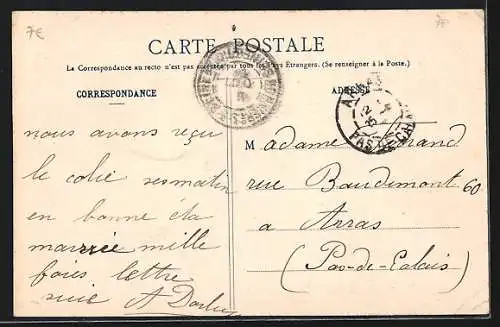 7€
7€
CARTE POSTALE
La Correspondance au recto n'est pas acceptée par tous les Pays Étrangers. (Se renseigner à la Poste.)
CORRESPONDANCE
ADRESSE
ARRAS
PAS-DE-CALAIS
nous avons reçu
le colie ce matin
en bonne éta
mille
fois lettre
suie A
Madame
rue Baudimont 60
a Arras
(Pas-de-Calais)